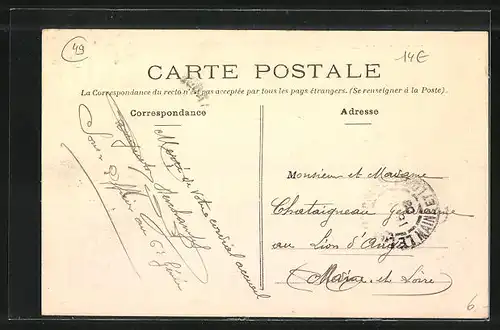 49
14€
CARTE POSTALE
La Correspondance du recto n'est pas acceptée par tous les pays étrangers. (Se renseigner à la Poste).
Correspondance
Adresse
Merci de votre cordial accueil
Sous
au 6e Génie
Monsieur et Madame
Chataigneau
au Lion d'Angers
Maine et Loire
MAINE ET LOIRE
6